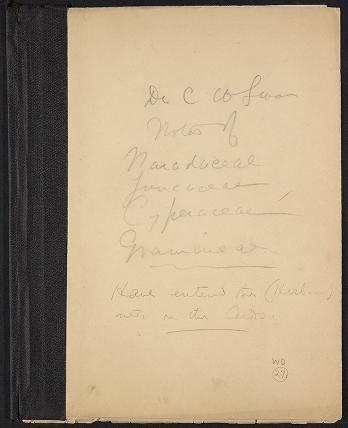 Dr C W Swan
Notes of
Naiadaceae
Juncaceae
Cyperaceae
Gramineae
Have entered the (Herb.)
notes on the Cards.
WD
27